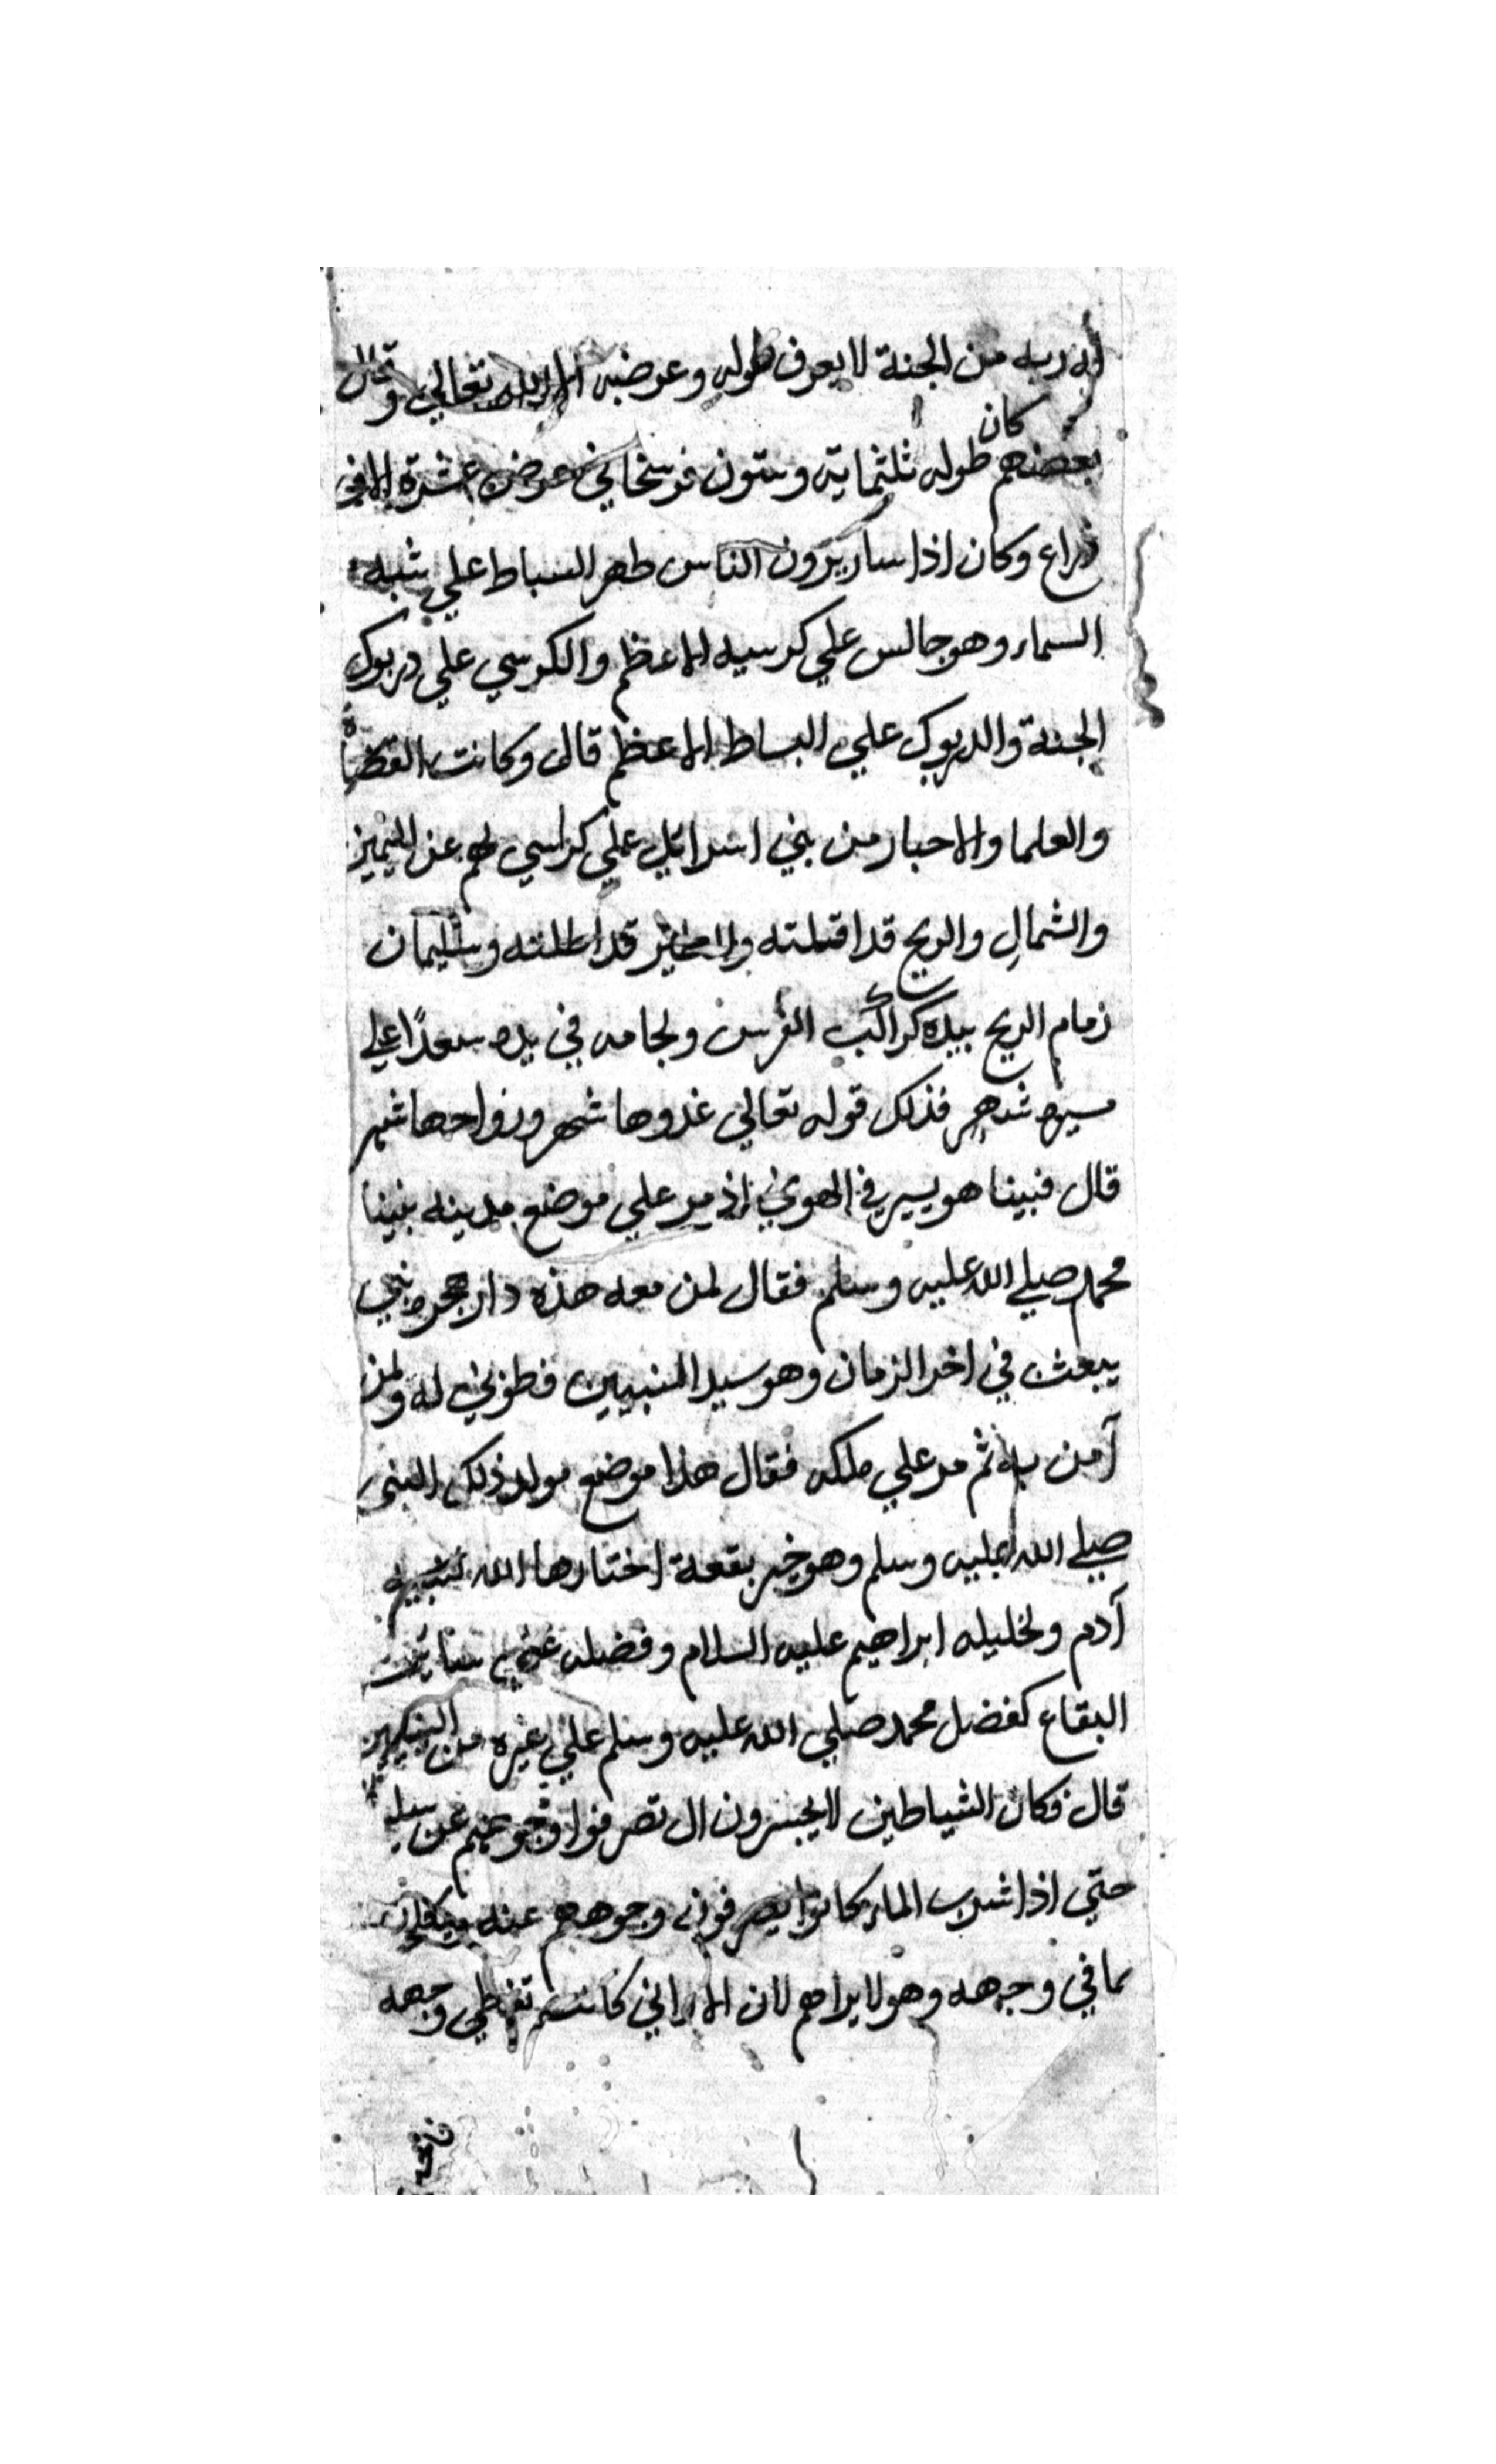 به ربه من الجنة لا يعرف طوله وعرضه الا الله تعالي وقال
كان
بعضهم طوله ثلثماية وستون فرسخا في عرض عشرة الاف
ذراع وكان اذا سار يرون الناس طهر البساط علي شبه
السماء وهو جالس علي كرسيه الاعظم والكرسي علي دربوك
الجنة والدربوك علي البساط الاعظم قال وكانت القضاة
والعلما والاحبار من بني اسرائيل علي كراسي لهم عن اليمين
والشمال والريح قد اقلته والطير قد اظلته وسليمان
زمام الريح بيده كراكب الفرس ولجامه في يده سعدًا علي
مسيرة شهر فذلك قوله تعالي غدوها شهر ورواحها شهر
قال فبينا هو يسير في الهوي اذ مر علي موضع مدينه نبينا
محمد صلي الله عليه وسلم فقال لمن معه هذه دار هجرة نبي
يبعث في اخر الزمان وهو سيد النبيين فطوبي له ولمن
آمن به ثم مر علي مكه فقال هذا موضع مولد ذلك النبي
صلي الله عليه وسلم وهو خير بقعة اختارها الله لنبيه
آدم ولخليله ابراهيم عليه السلام وفضله علي ساير
البقاع كفضل محمد صلي الله عليه وسلم علي غيره من النبيين
قال فكان الشياطين لا يجسرون ال تصرفوا وجوههم عن
حتي اذا شرب الماء كانوا يصرفون وجوههم عنه
بما في وجهه وهو لا يراهم لان الاواني كانت تغطي وجهه